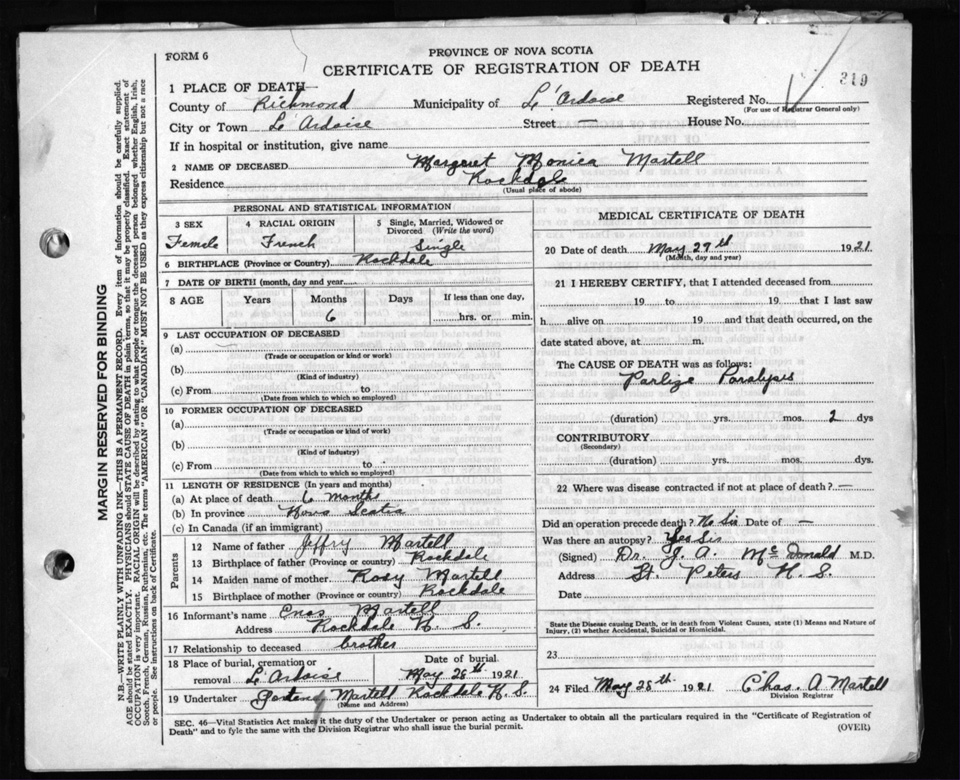 FORM 6
PROVINCE OF NOVA SCOTIA
CERTIFICATE OF REGISTRATION OF DEATH
319
1 PLACE OF DEATH
County of Richmond Municipality of L'Ardoise Registered No.
(For use of Registrar General only)
City or Town L'Ardoise Street — House No.
If in hospital or institution, give name
2 NAME OF DECEASED Margaret Monica Martell
Residence Rockdale
(Usual place of abode)
PERSONAL AND STATISTICAL INFORMATION
3 SEX 4 RACIAL ORIGIN 5 Single, Married, Widowed or Divorced (Write the word)
Female French Single
6 BIRTHPLACE (Province or Country) Rockdale
7 DATE OF BIRTH (month, day and year)
8 AGE Years Months Days If less than one day,
6 hrs. or min.
9 LAST OCCUPATION OF DECEASED
(a)
(Trade or occupation or kind of work)
(b)
(Kind of industry)
(c) From to
(Date from which to which so employed)
10 FORMER OCCUPATION OF DECEASED
(a)
(Trade or occupation or kind of work)
(b)
(Kind of industry)
(c) From to
(Date from which to which so employed)
11 LENGTH OF RESIDENCE (In years and months)
(a) At place of death 6 months
(b) In province Nova Scotia
(c) In Canada (if an immigrant)
Parents
12 Name of father Jeffry Martell
13 Birthplace of father (Province or country) Rockdale
14 Maiden name of mother Rosy Martell
15 Birthplace of mother (Province or country) Rockdale
16 Informant's name Enos Martell
Address Rockdale N. S.
17 Relationship to deceased brother
18 Place of burial, cremation or removal L'Ardoise
Date of burial May 28th 1921
19 Undertaker Martell Rockdale N. S.
(Name and Address)
MEDICAL CERTIFICATE OF DEATH
20 Date of death May 27th 1921
(Month, day and year)
21 I HEREBY CERTIFY, that I attended deceased from
19 to 19 that I last saw
h alive on 19 and that death occurred, on
date stated above, at m.
The CAUSE OF DEATH was as follows:
Parlize Paralysis
(duration) yrs. mos. 2 dys
CONTRIBUTORY
(Secondary)
(duration) yrs. mos. dys.
22 Where was disease contracted if not at place of death? —
Did an operation precede death? No Sir Date of —
Was there an autopsy? Yes Sir
(Signed) Dr. J. A. McDonald M.D.
Address St. Peters N. S.
Date
State the Disease causing Death, or in death from Violent Causes, state (1) Means and Nature of
Injury, (2) whether Accidental, Suicidal or Homicidal.
23
24 Filed May 28th 1921 Chas. A Martell
Division Registrar
SEC. 46—Vital Statistics Act makes it the duty of the Undertaker or person acting as Undertaker to obtain all the particulars required in the "Certificate of Registration of
Death" and to fyle the same with the Division Registrar who shall issue the burial permit.
(OVER)
MARGIN RESERVED FOR BINDING
N.B.—WRITE PLAINLY WITH UNFADING INK—THIS IS A PERMANENT RECORD. Every item of information should be carefully supplied.
AGE should be stated EXACTLY. PHYSICIANS should STATE CAUSE OF DEATH in plain terms, so that it may be properly classified. Exact statement of
OCCUPATION is very important. RACIAL ORIGIN will be described by stating to what people or tongue the deceased person belonged whether English, Irish,
Scotch, French, German, Russian, Ruthenian, etc. The terms "AMERICAN" OR "CANADIAN" MUST NOT BE USED as they express citizenship but not a race
or people. See instructions on back of Certificate.